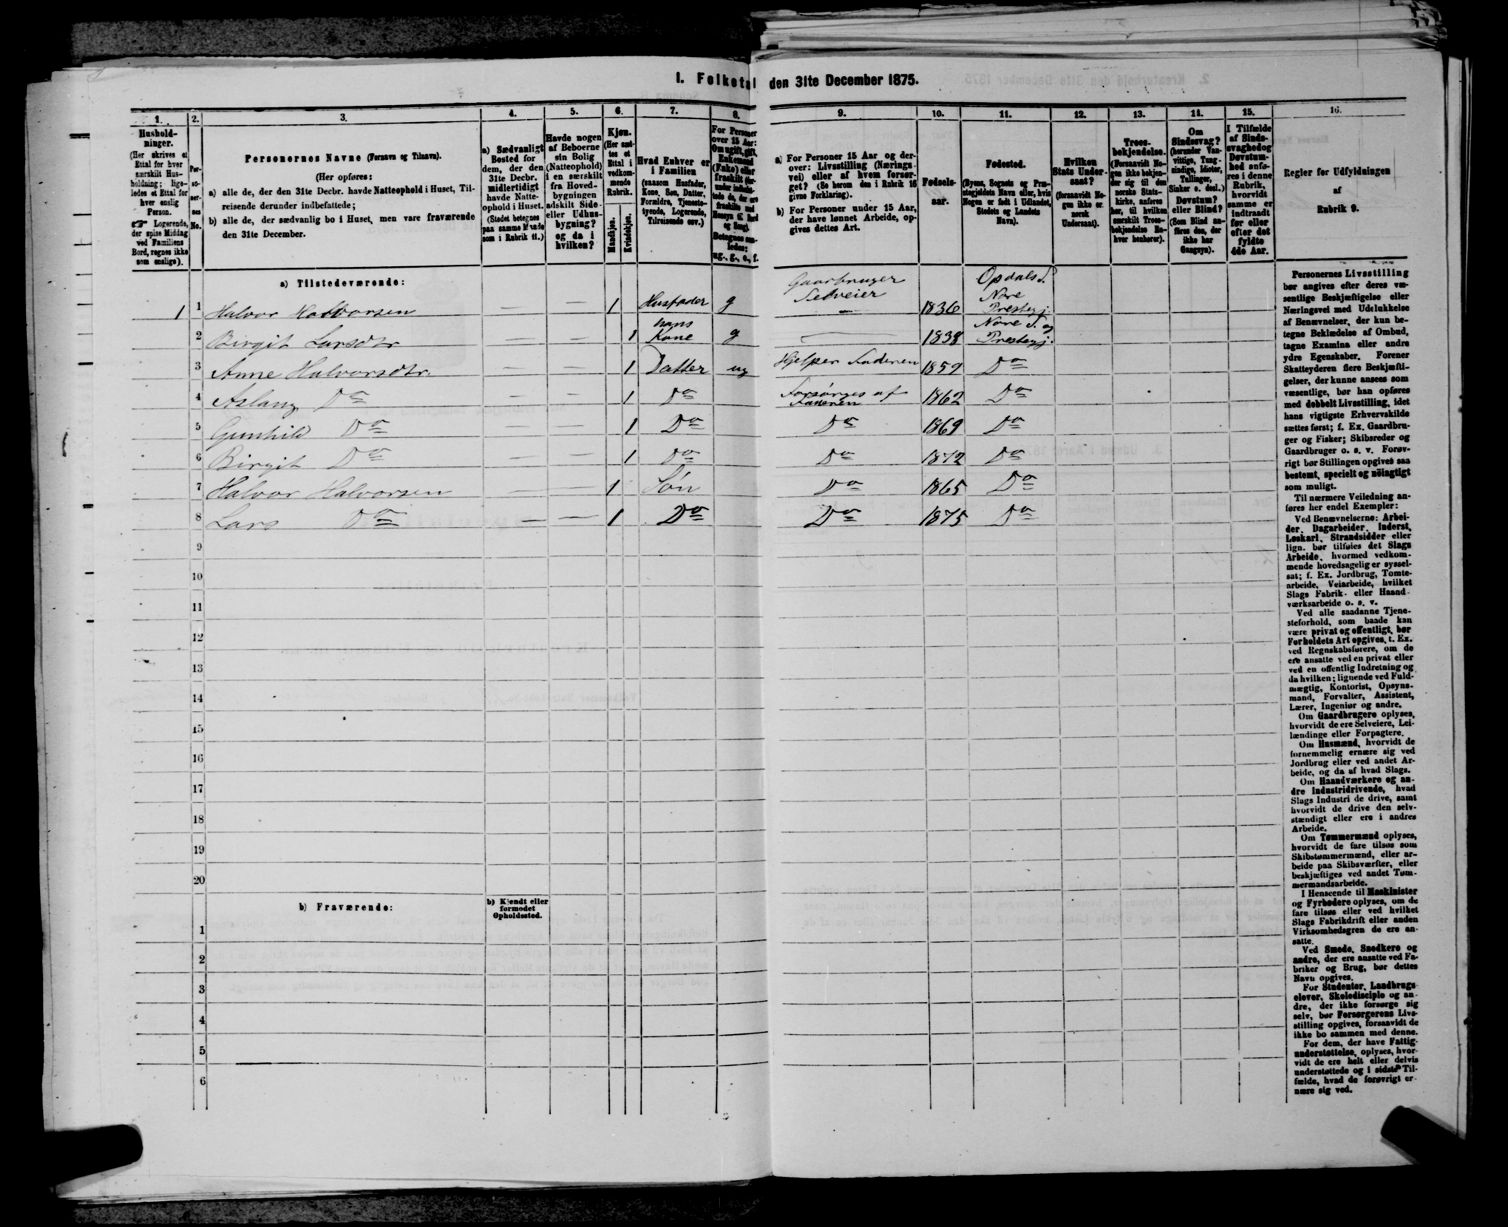 1. Folketal den 31te December 1875.
1. 2. 3. 4. 5. 6. 7. 8. 9. 10. 11. 12. 13. 14. 15. 16.
Hushold-
ninger.
(Her skrives et
Ettal for hver
særskilt Hus-
holdning; lige-
ledes et Ettal for
hver enslig
Person.
☞ Logerende,
der spise Middag
ved Familiens
Bord, regnes ikke
som enslige).
Per-
so-
ner-
nes
No.
Personernes Navne (Fornavn og Tilnavn).
(Her opføres:
a) alle de, der den 31te Decbr. havde Natteophold i Huset, Til-
reisende derunder indbefattede;
b) alle de, der sædvanlig bo i Huset, men vare fraværende
den 31te December.
a) Sædvanligt
Bosted for
dem, der den
31te Decbr.
midlertidigt
havde Natte-
ophold i Huset.
(Stedet betegnes
paa samme Maade
som i Rubrik 11.)
Havde nogen
af Beboerne
sin Bolig
(Natteophold)
i en særskilt
fra Hoved-
bygningen
adskilt Side-
eller Udhus-
bygning?
og da i
hvilken?
Kjøn.
(Her sæt-
tes et
Ettal i
vedkom-
mende
Rubrik.
Mandkjøn.
Kvindekjøn.
Hvad Enhver er
i Familien
(saasom Husfader,
Kone, Søn, Datter,
Forældre, Tjeneste-
tyende, Logerende,
Tilreisende osv.)
For Personer
over 15 Aar:
Om ugift, gift,
Enkemand
(Enke) eller
fraskilt
ug., g., e., f.
a) For Personer 15 Aar og der-
over: Livsstilling (Nærings-
vei) eller af hvem forsør-
get? (Se herom den i Rubrik 16
givne Forklaring).
b) For Personer under 15 Aar,
der have lønnet Arbeide, op-
gives dettes Art.
Fødsels-
aar.
Fødested.
(Byens, Sognets og Præ-
stegjeldets Navn eller, hvis
Nogen er født i Udlandet,
Stedets og Landets
Navn).
Hvilken
Stats Under-
saat?
(forsaavidt No-
gen ikke er
norsk
Undersaat).
Troes-
bekjendelse.
(Forsaavidt No-
gen ikke bekjen-
der sig til den
norske Stats-
kirke, anføres
her, til hvilken
særskilt Troes-
bekjendelse En-
hver henhører).
Om
Sindssvag?
(herunder Van-
vittige, Tung-
sindige, Idioter,
Tullinger,
Sinker o. desl.)
Døvstum?
eller Blind?
(Som Blind an-
føres den, der
ikke har
Gangsyn).
I Tilfælde
af Sinds-
svaghed og
Døvstum-
hed anfø-
res i denne
Rubrik,
hvorvidt
samme er
indtraadt
før eller
efter det
fyldte
4de Aar.
Regler for Udfyldningen
af
Rubrik 9.
a) Tilstedeværende:
1 1 Halvor Halvorsen — — 1 Husfader g Gaarbruger Selveier 1836 Opdals S. Nore Prestegj.
2 Birgit Larsdtr — — 1 hans Kone g — 1838 Nore S. og Prestegj.
3 Anne Halvorsdtr. — — 1 Datter ug Hjelper Faderen 1859 Do
4 Aslaug Do — — 1 Do Forsørges af Faderen 1862 Do
5 Gunhild Do — — 1 Do Do 1869 Do
6 Birgit Do — — 1 Do Do 1872 Do
7 Halvor Halvorsen — — 1 Søn Do 1865 Do
8 Lars Do — — 1 Do Do 1875 Do
9
10
11
12
13
14
15
16
17
18
19
20
b) Fraværende:
b) Kjendt eller
formodet
Opholdssted.
1
2
3
4
5
6
Personernes Livsstilling
bør angives efter deres væ-
sentlige Beskjæftigelse eller
Næringsvei med Udelukkelse
af Benævnelser, der kun be-
tegne Beklædelse af Ombud,
tagne Examina eller andre
ydre Egenskaber. Forener
Skatteyderen flere Beskjæfti-
gelser, der kunne ansees som
væsentlige, bør han opføres
med dobbelt Livsstilling, idet
hans vigtigste Erhvervskilde
sættes først; f. Ex. Gaardbru-
ger og Fisker; Skibsreder og
Gaardbruger o. s. v. Forøv-
rigt bør Stillingen opgives saa
bestemt, specielt og nöiagtigt
som muligt.
Til nærmere Veiledning an-
føres her endel Exempler:
Ved Benævnelserne: Arbei-
der, Dagarbeider, Inderst,
Løskarl, Strandsidder eller
lign. bør tilføies det Slags
Arbeide, hvormed vedkom-
mende hovedsagelig er syssel-
sat; f. Ex. Jordbrug, Tomte-
arbeide, Veiarbeide, hvilket
Slags Fabrik- eller Haand-
værksarbeide o. s. v.
Ved alle saadanne Tjene-
steforhold, som baade kan
være privat og offentligt, bør
Forholdets Art opgives, t. Ex.
ved Regnskabsførere, om de
ere ansatte ved en privat eller
ved en offentlig Indretning og
da hvilken; lignende ved Fuld-
mægtig, Kontorist, Opsyns-
mand, Forvalter, Assistent,
Lærer, Ingeniør og andre.
Om Gaardbrugere oplyses,
hvorvidt de ere Selveiere, Lei-
lændinge eller Forpagtere.
Om Husmænd, hvorvidt de
fornemmelig ernære sig ved
Jordbrug eller ved andet Ar-
beide, og da af hvad Slags.
Om Haandværkere og an-
dre Industridrivende, hvad
Slags Industri de drive, samt
hvorvidt de drive den selv-
stændigt eller ere i andres
Arbeide.
Om Tømmermænd oplyses,
hvorvidt de fare tilsøs som
Skibstømmermænd, eller ar-
beide paa Skibsværfter, eller
beskjæftiges ved andet Tøm-
mermandsarbeide.
I Henseende til Maskinister
og Fyrbødere oplyses, om de
fare tilsøs eller ved hvilket
Slags Fabrikdrift eller anden
Virksomhedsgren de ere an-
satte.
Ved Smede, Snedkere og
andre, der ere ansatte ved Fa-
briker og Brug, bør dettes
Navn opgives.
For Studenter, Landbrugs-
elever, Skoledisciple og an-
dre, der ikke forsørge sig
selv, bør Forsørgerens Livs-
stilling opgives, forsaavidt de
ikke bo sammen med denne.
For dem, der have Fattig-
understøttelse, oplyses, hvor-
vidt de ere helt eller delvis
understøttede og i sidste Til-
fælde, hvad de forøvrigt er-
nære sig ved.